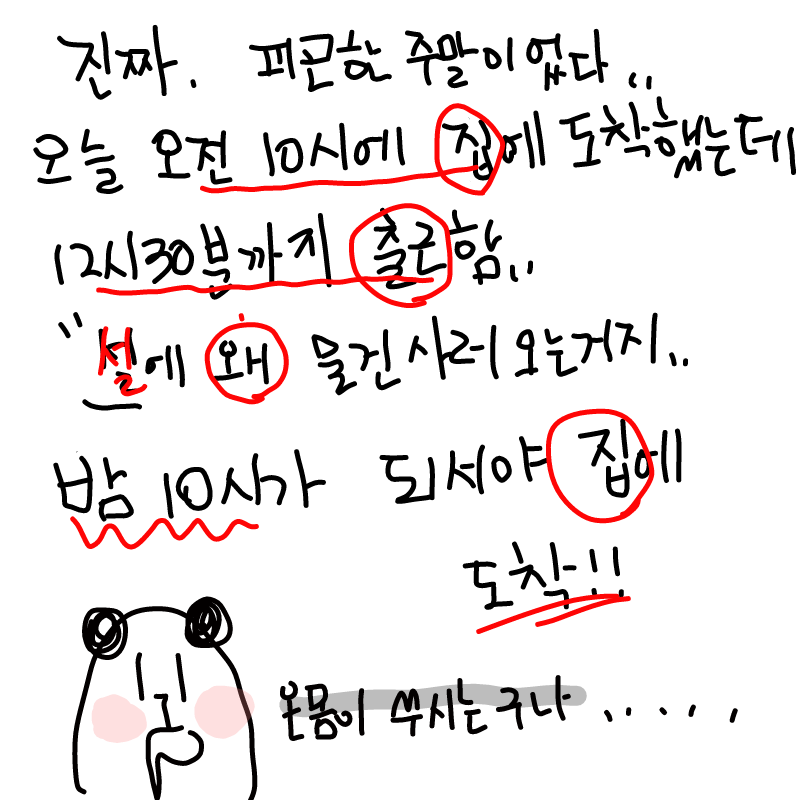 진짜. 피곤한 주말이었다..
오늘 오전 10시에 집에 도착했는데
12시30분까지 출근함..
"설에 왜 물건사러 오는거지..
밤 10시가 되서야 집에
도착!!
온몸이 쑤시는구나 .....